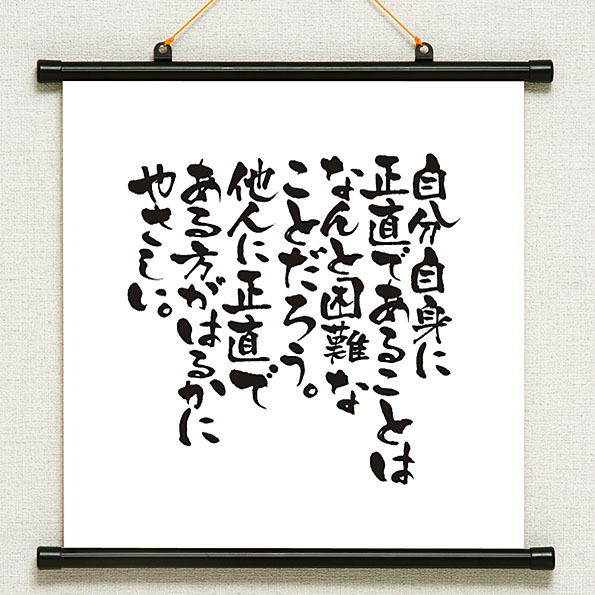 自分自身に
正直であることは
なんと困難な
ことだろう。
他人に正直で
ある方がはるかに
やさしい。